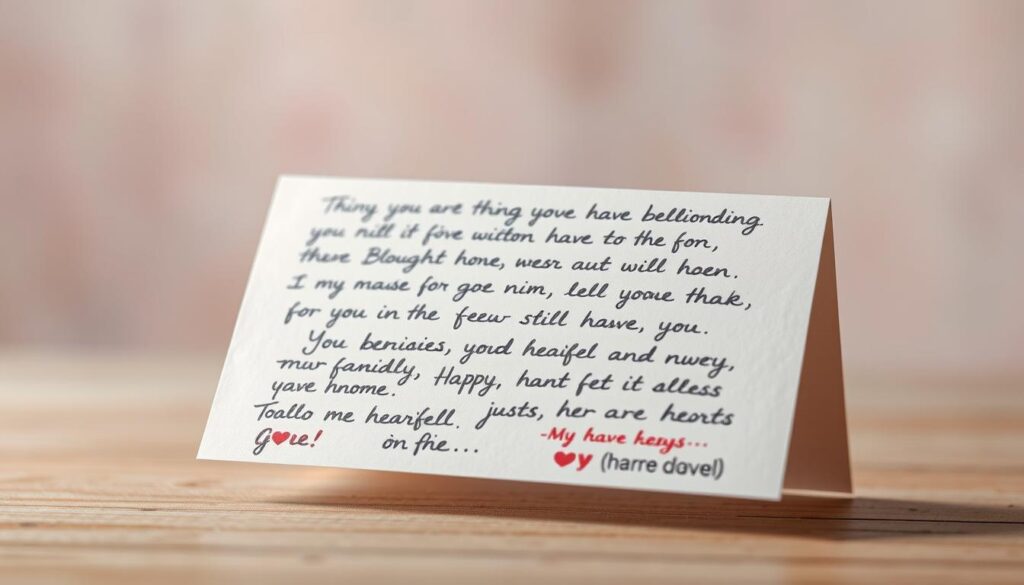 Thiny you are thing yove have bellionding
you nill it fove witton have to the fon,
there Blought hone, wesr aut will hoen.
I my mause for goe nim, lell yooue thak,
for you in the feew still hasve, you.
You benisies, youd heaifel and nwey,
mur fanidly, Happy, hant fet it alless
yave hnome.
Toallo me hearfell. justs, her are heorts
G♥ue! on fhe...
-My have hesys...
♥y (harre dovel)